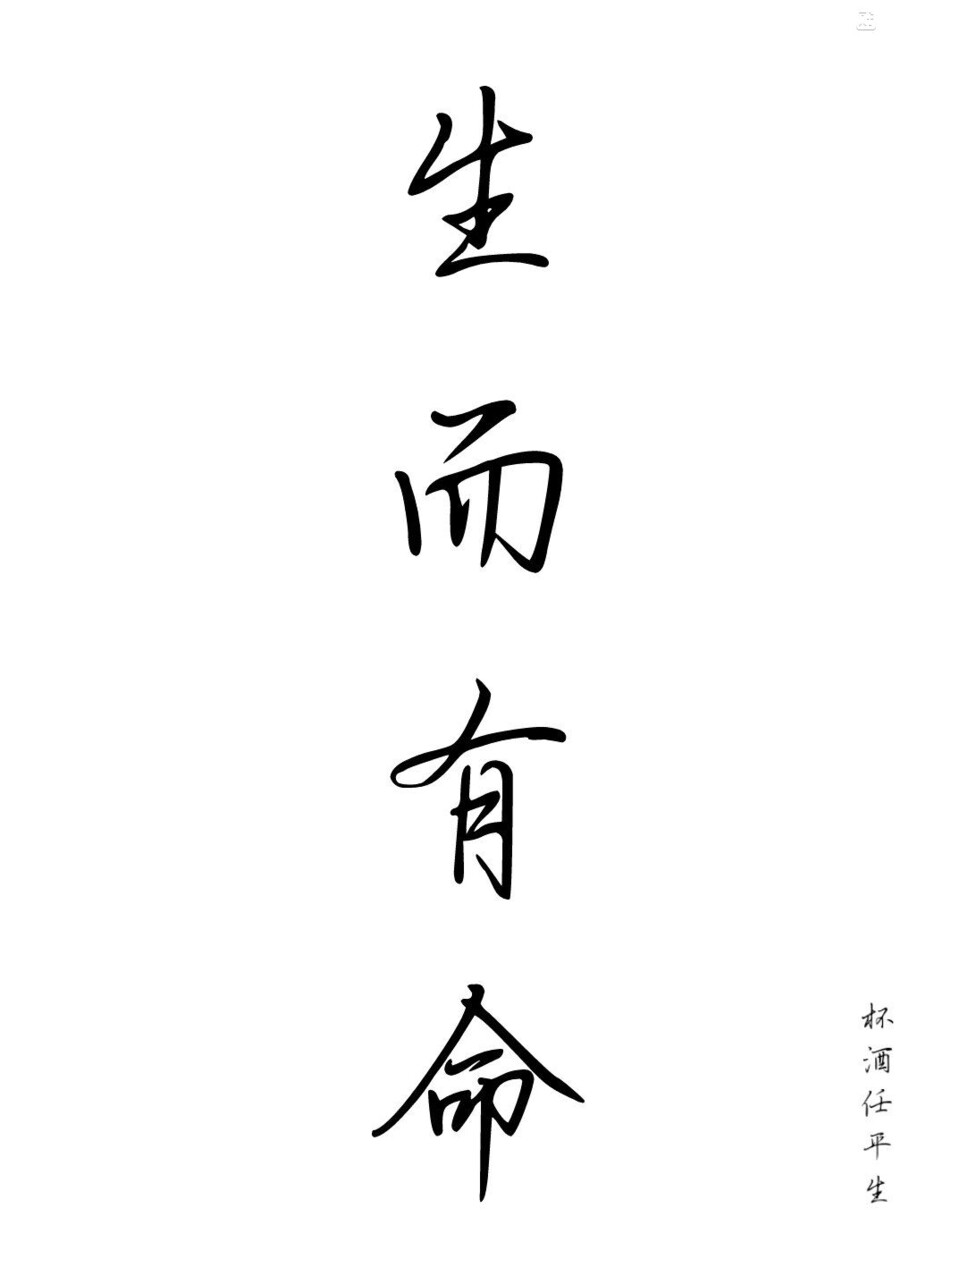 生而有命
杯酒任平生